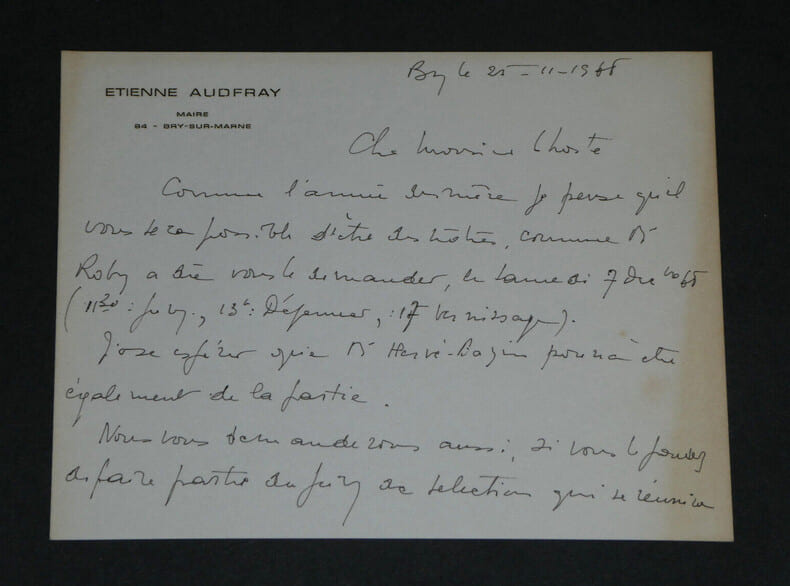 ETIENNE AUDFRAY
MAIRE
94 - BRY-SUR-MARNE
Bry le 25-11-1968
Cher Monsieur Lhoste
Comme l'année dernière je pense qu'il
vous sera possible d'être des nôtres, comme Mr
Roby a dû vous le demander, le samedi 7 Dec 68
(11 30 : Jury., 13h : Déjeuner, : 17 Vernissage).
J'ose espérer que Mr Hervé-Bazin pourra être
également de la partie.
Nous vous demanderons aussi, si vous le pouvez
de faire partie du jury de selection qui se réunira